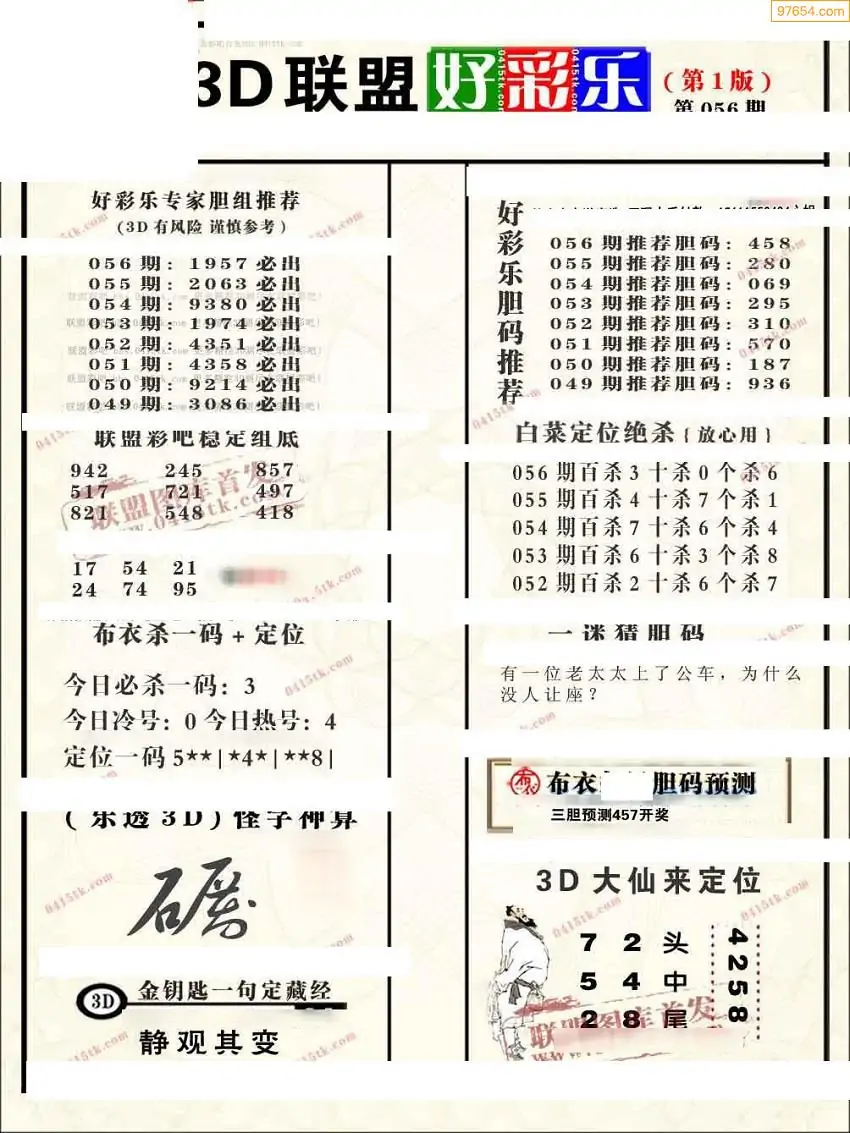 97654.com
3D联盟好彩乐
(第1版)
第056期
好彩乐专家胆组推荐
(3D有风险 谨慎参考)
056期：1957必出
055期：2063必出
054期：9380必出
053期：1974必出
052期：4351必出
051期：4358必出
050期：9214必出
049期：3086必出
联盟彩吧稳定组底
942 245 857
517 721 497
821 548 418
17 54 21
24 74 95
布衣杀一码+定位
今日必杀一码：3
今日冷号：0 今日热号：4
定位一码5**|*4*|**8|
(乐透3D)怪字神算
3D 金钥匙一句定藏经
静观其变
好彩乐胆码推荐
056期推荐胆码：458
055期推荐胆码：280
054期推荐胆码：069
053期推荐胆码：295
052期推荐胆码：310
051期推荐胆码：570
050期推荐胆码：187
049期推荐胆码：936
白菜定位绝杀{放心用}
056期百杀3十杀0个杀6
055期百杀4十杀7个杀1
054期百杀7十杀6个杀4
053期百杀6十杀3个杀8
052期百杀2十杀6个杀7
一迷猜胆码
有一位老太太上了公车，为什么
没人让座？
布衣 胆码预测
三胆预测457开奖
3D大仙来定位
7 2 头
5 4 中
2 8 尾
4258
联盟图库首发
www.0415tk.com
0415tk.com